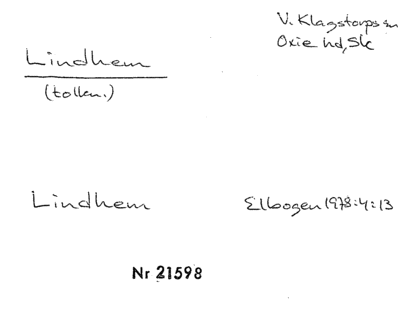 V. Klagstorps sn
Oxie hd, Sk
Lindhem
(tolkn.)
Lindhem
Elbogen 1978:4:13
Nr 21598